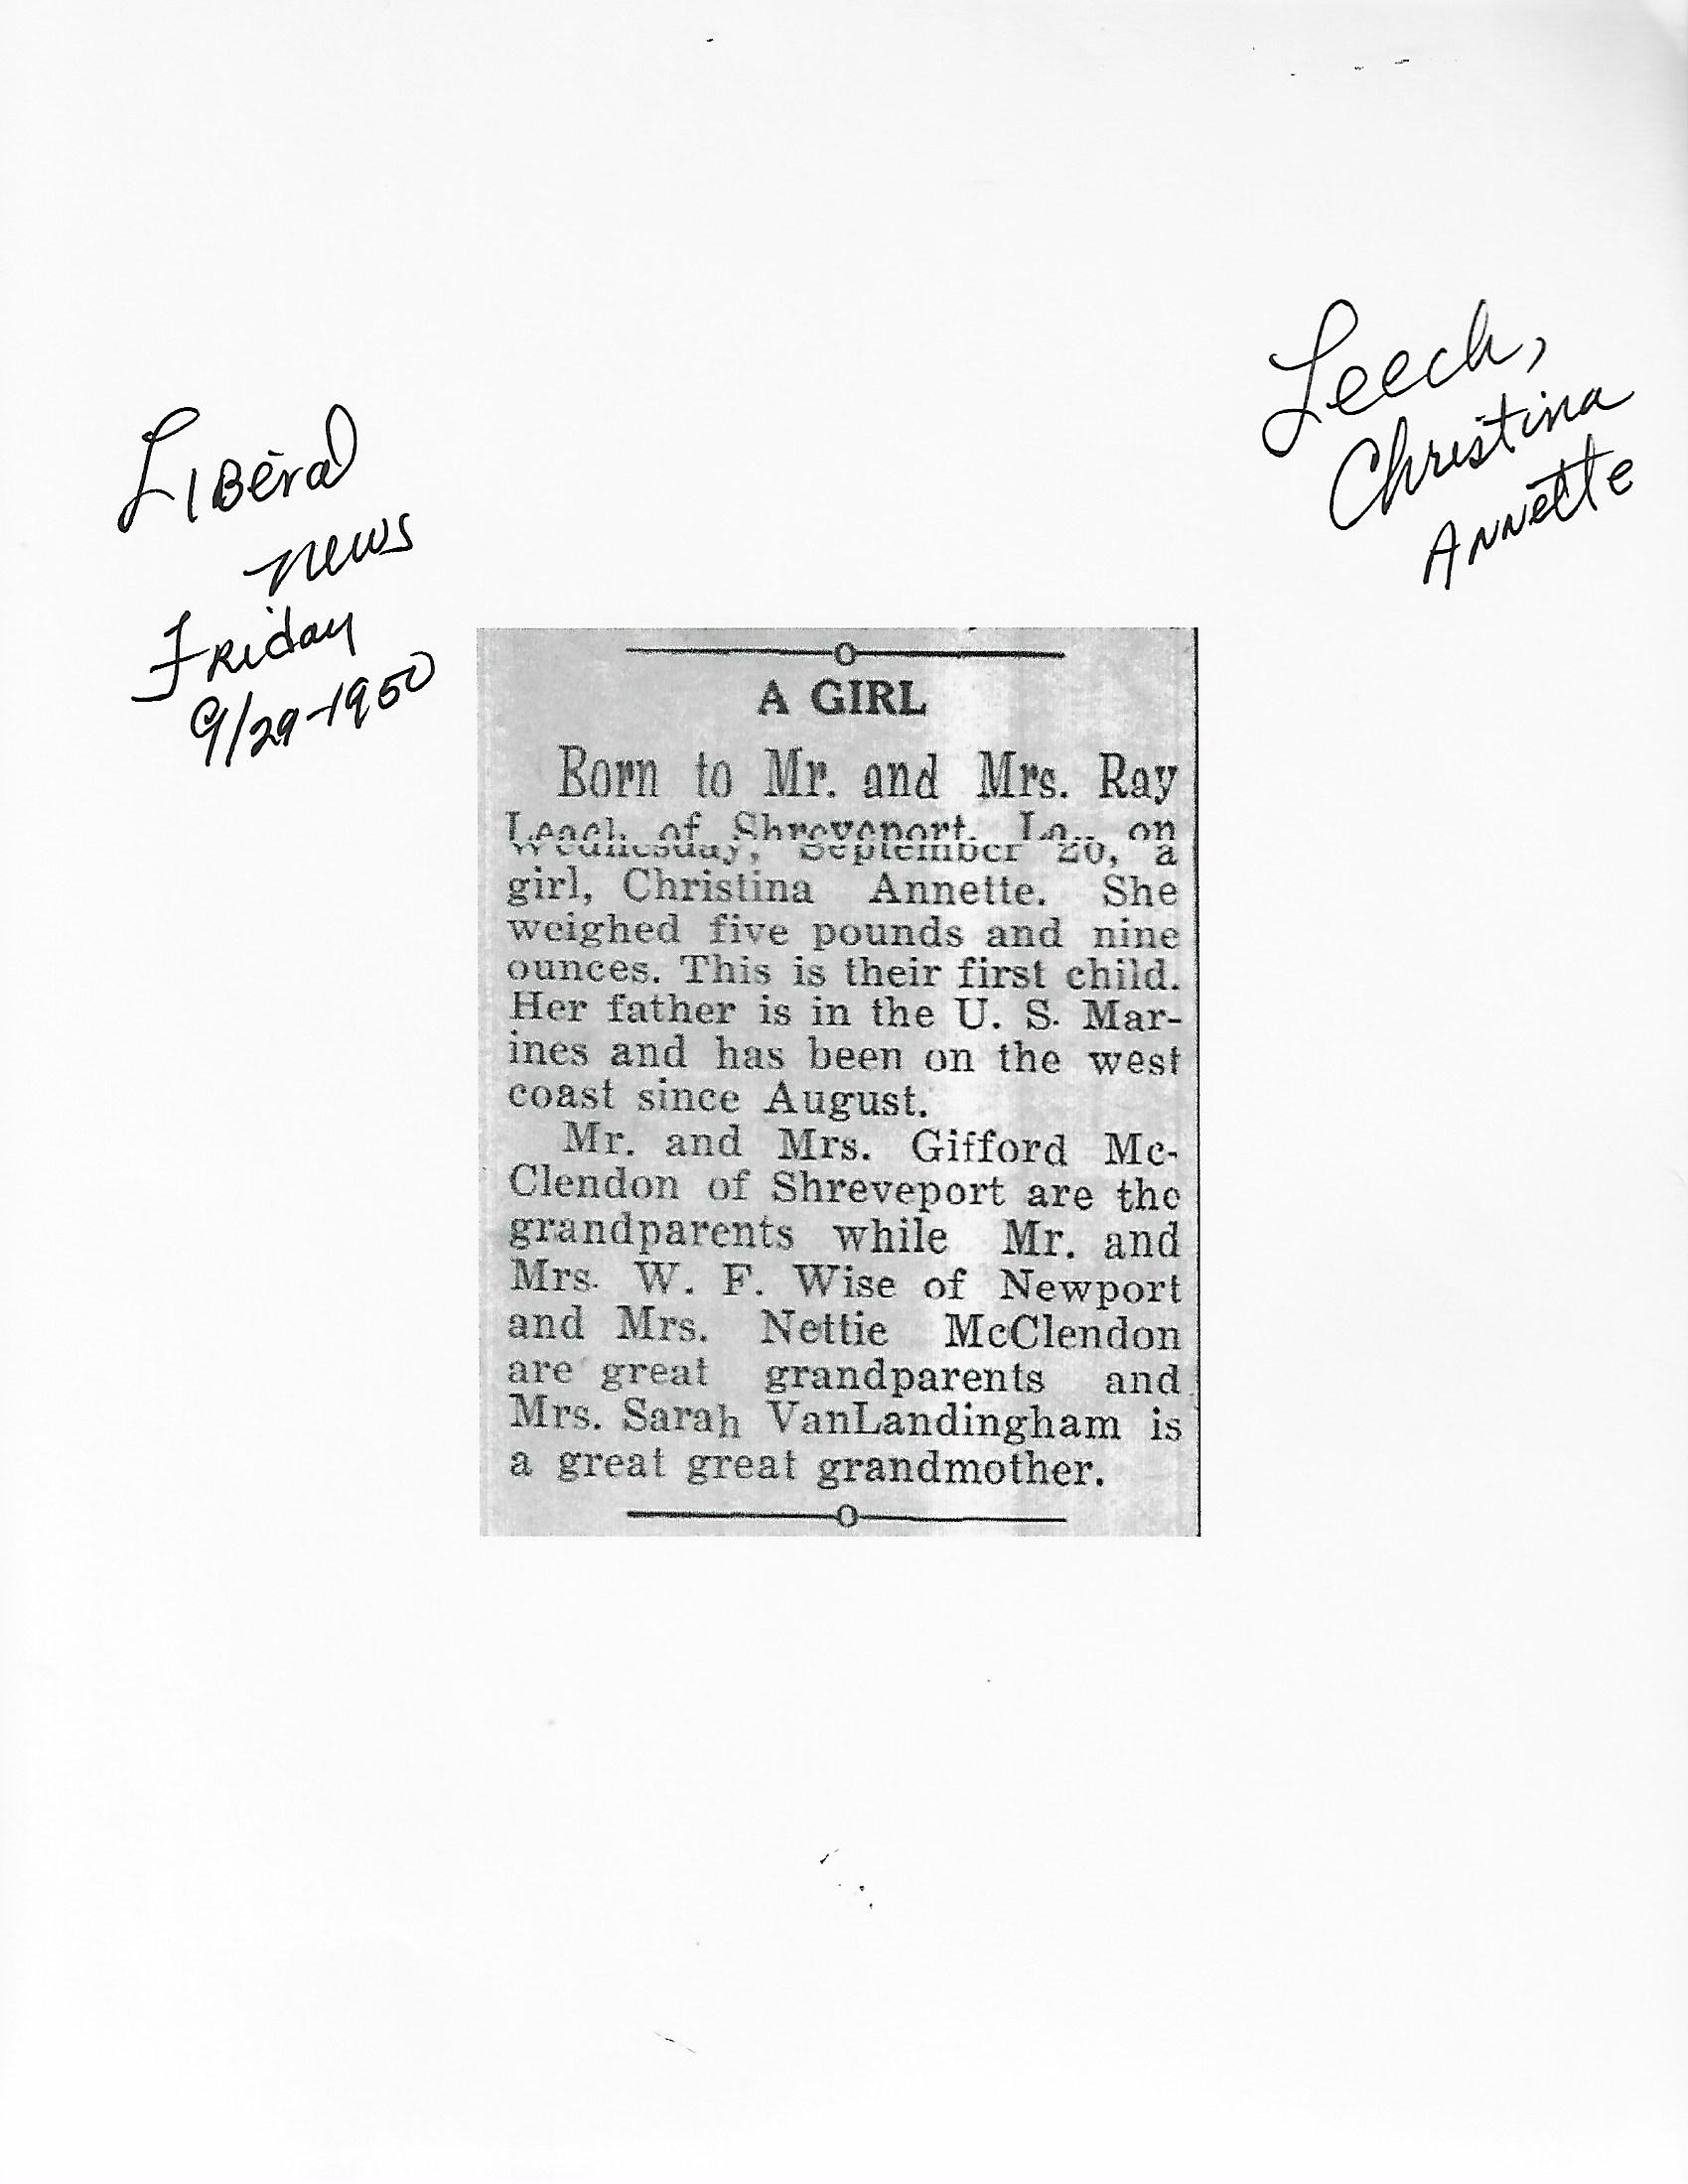 Leech,
Christina
Annette
Liberal
news
Friday
9/29-1950
A GIRL
Born to Mr. and Mrs. Ray
Leach of Shreveport, La., on
Wednesday, September 20, a
girl, Christina Annette. She
weighed five pounds and nine
ounces. This is their first child.
Her father is in the U. S. Mar-
ines and has been on the west
coast since August.
Mr. and Mrs. Gifford Mc-
Clendon of Shreveport are the
grandparents while Mr. and
Mrs. W. F. Wise of Newport
and Mrs. Nettie McClendon
are great grandparents and
Mrs. Sarah VanLandingham is
a great great grandmother.